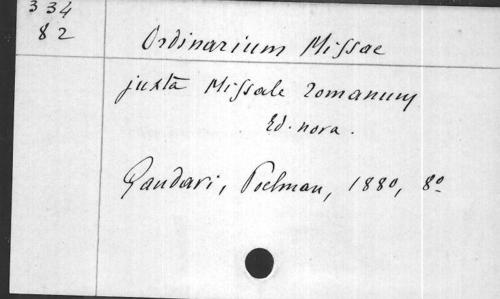 334
82
Ordinarium Missae
juxta Missale romanum
Ed. nova.
Gandavi, Poelman, 1880, 8º